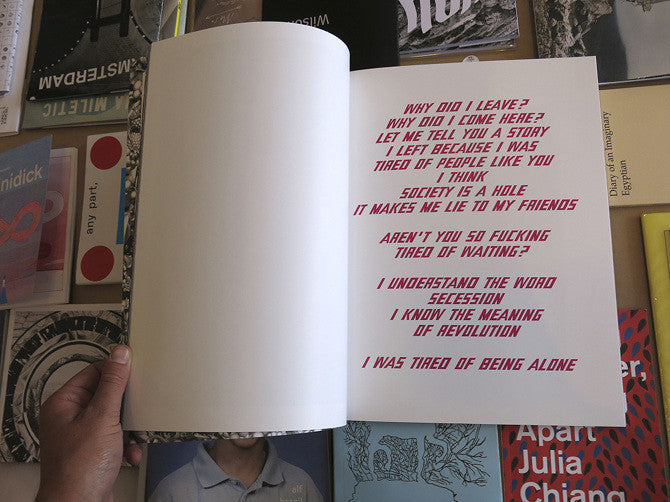 Wilso
AMSTERDAM
A MILETIC
nidick
any part,
WHY DID I LEAVE?
WHY DID I COME HERE?
LET ME TELL YOU A STORY
I LEFT BECAUSE I WAS
TIRED OF PEOPLE LIKE YOU
I THINK
SOCIETY IS A HOLE
IT MAKES ME LIE TO MY FRIENDS
AREN'T YOU SO FUCKING
TIRED OF WAITING?
I UNDERSTAND THE WORD
SECESSION
I KNOW THE MEANING
OF REVOLUTION
I WAS TIRED OF BEING ALONE
Diary of an Imaginary
Egyptian
er,
Apart
Julia
Chiang